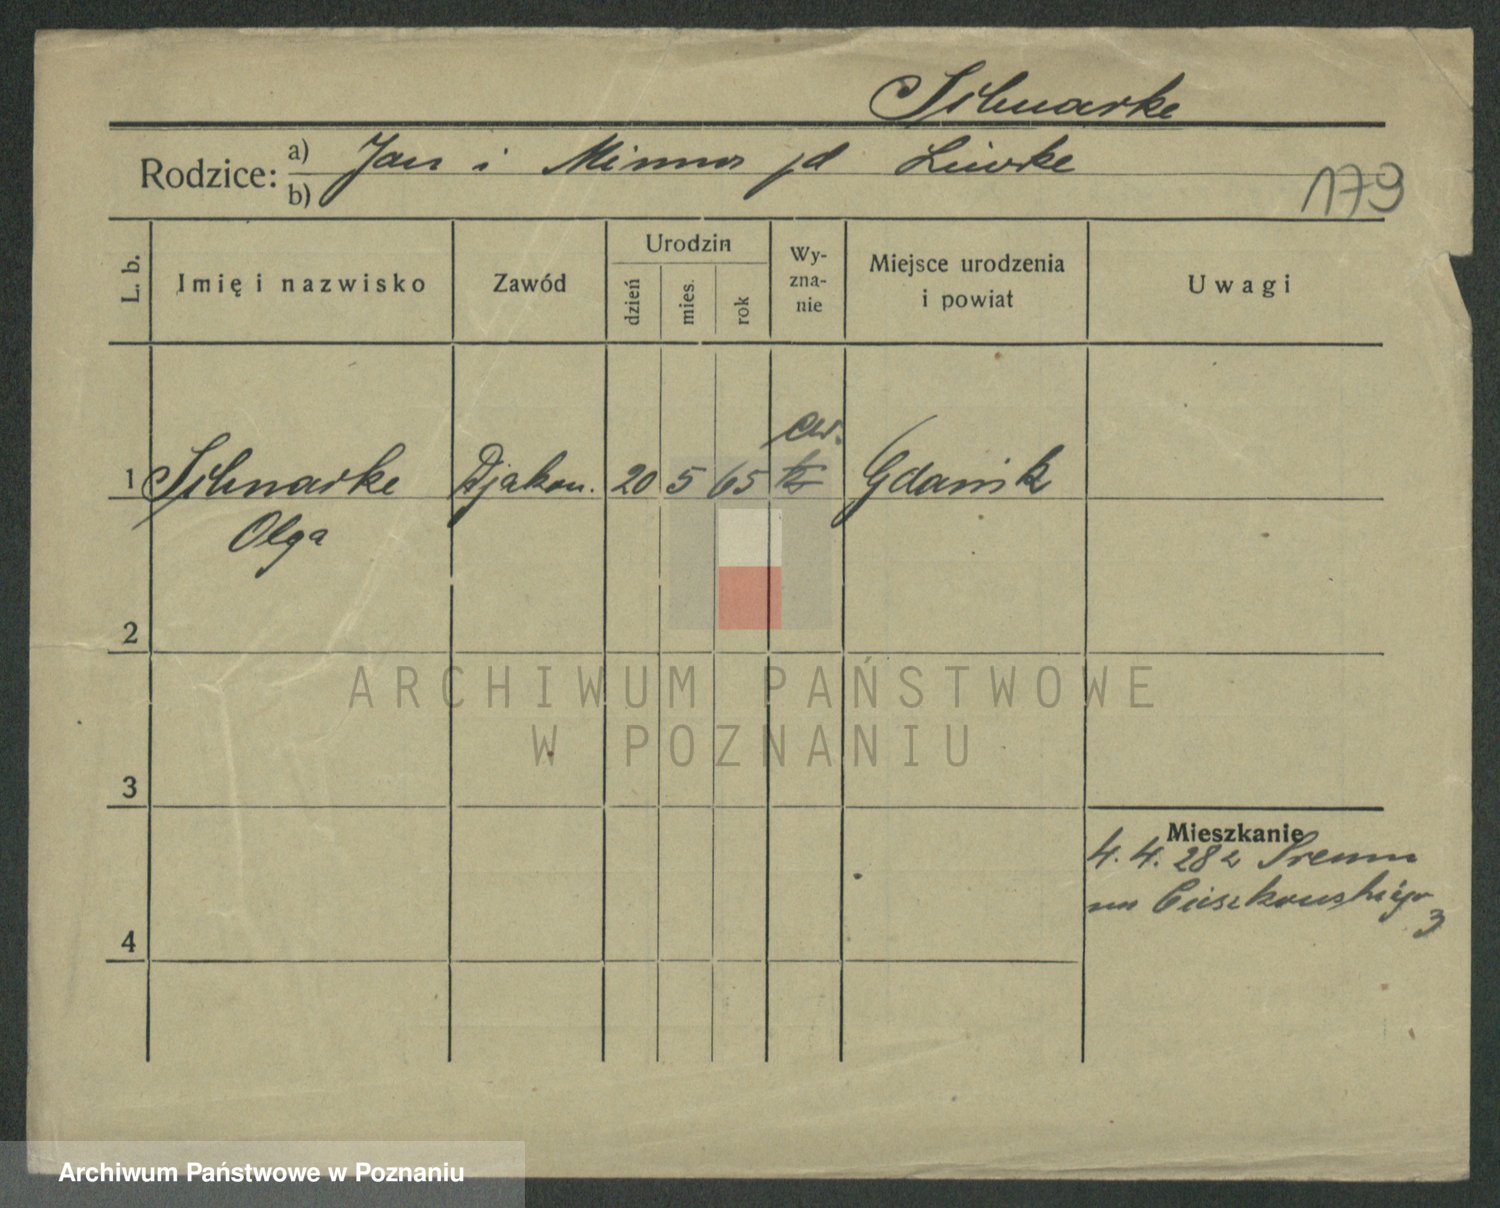 Rodzice: a) Jan i Minna jd
b)
179
L. b.
Imię i nazwisko
Zawód
Urodzin
dzień
mies.
rok
Wy-
zna-
nie
Miejsce urodzenia
i powiat
Uwagi
ew.
1 Djakon. 20 5 65 Gdańsk
Olga
2
ARCHIWUM PAŃSTWOWE
W POZNANIU
3
Mieszkanie
4. 4. 28 z Śremu
3
4
Archiwum Państwowe w Poznaniu